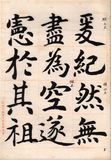 爰紀然無
盡為空遂
憲於其祖